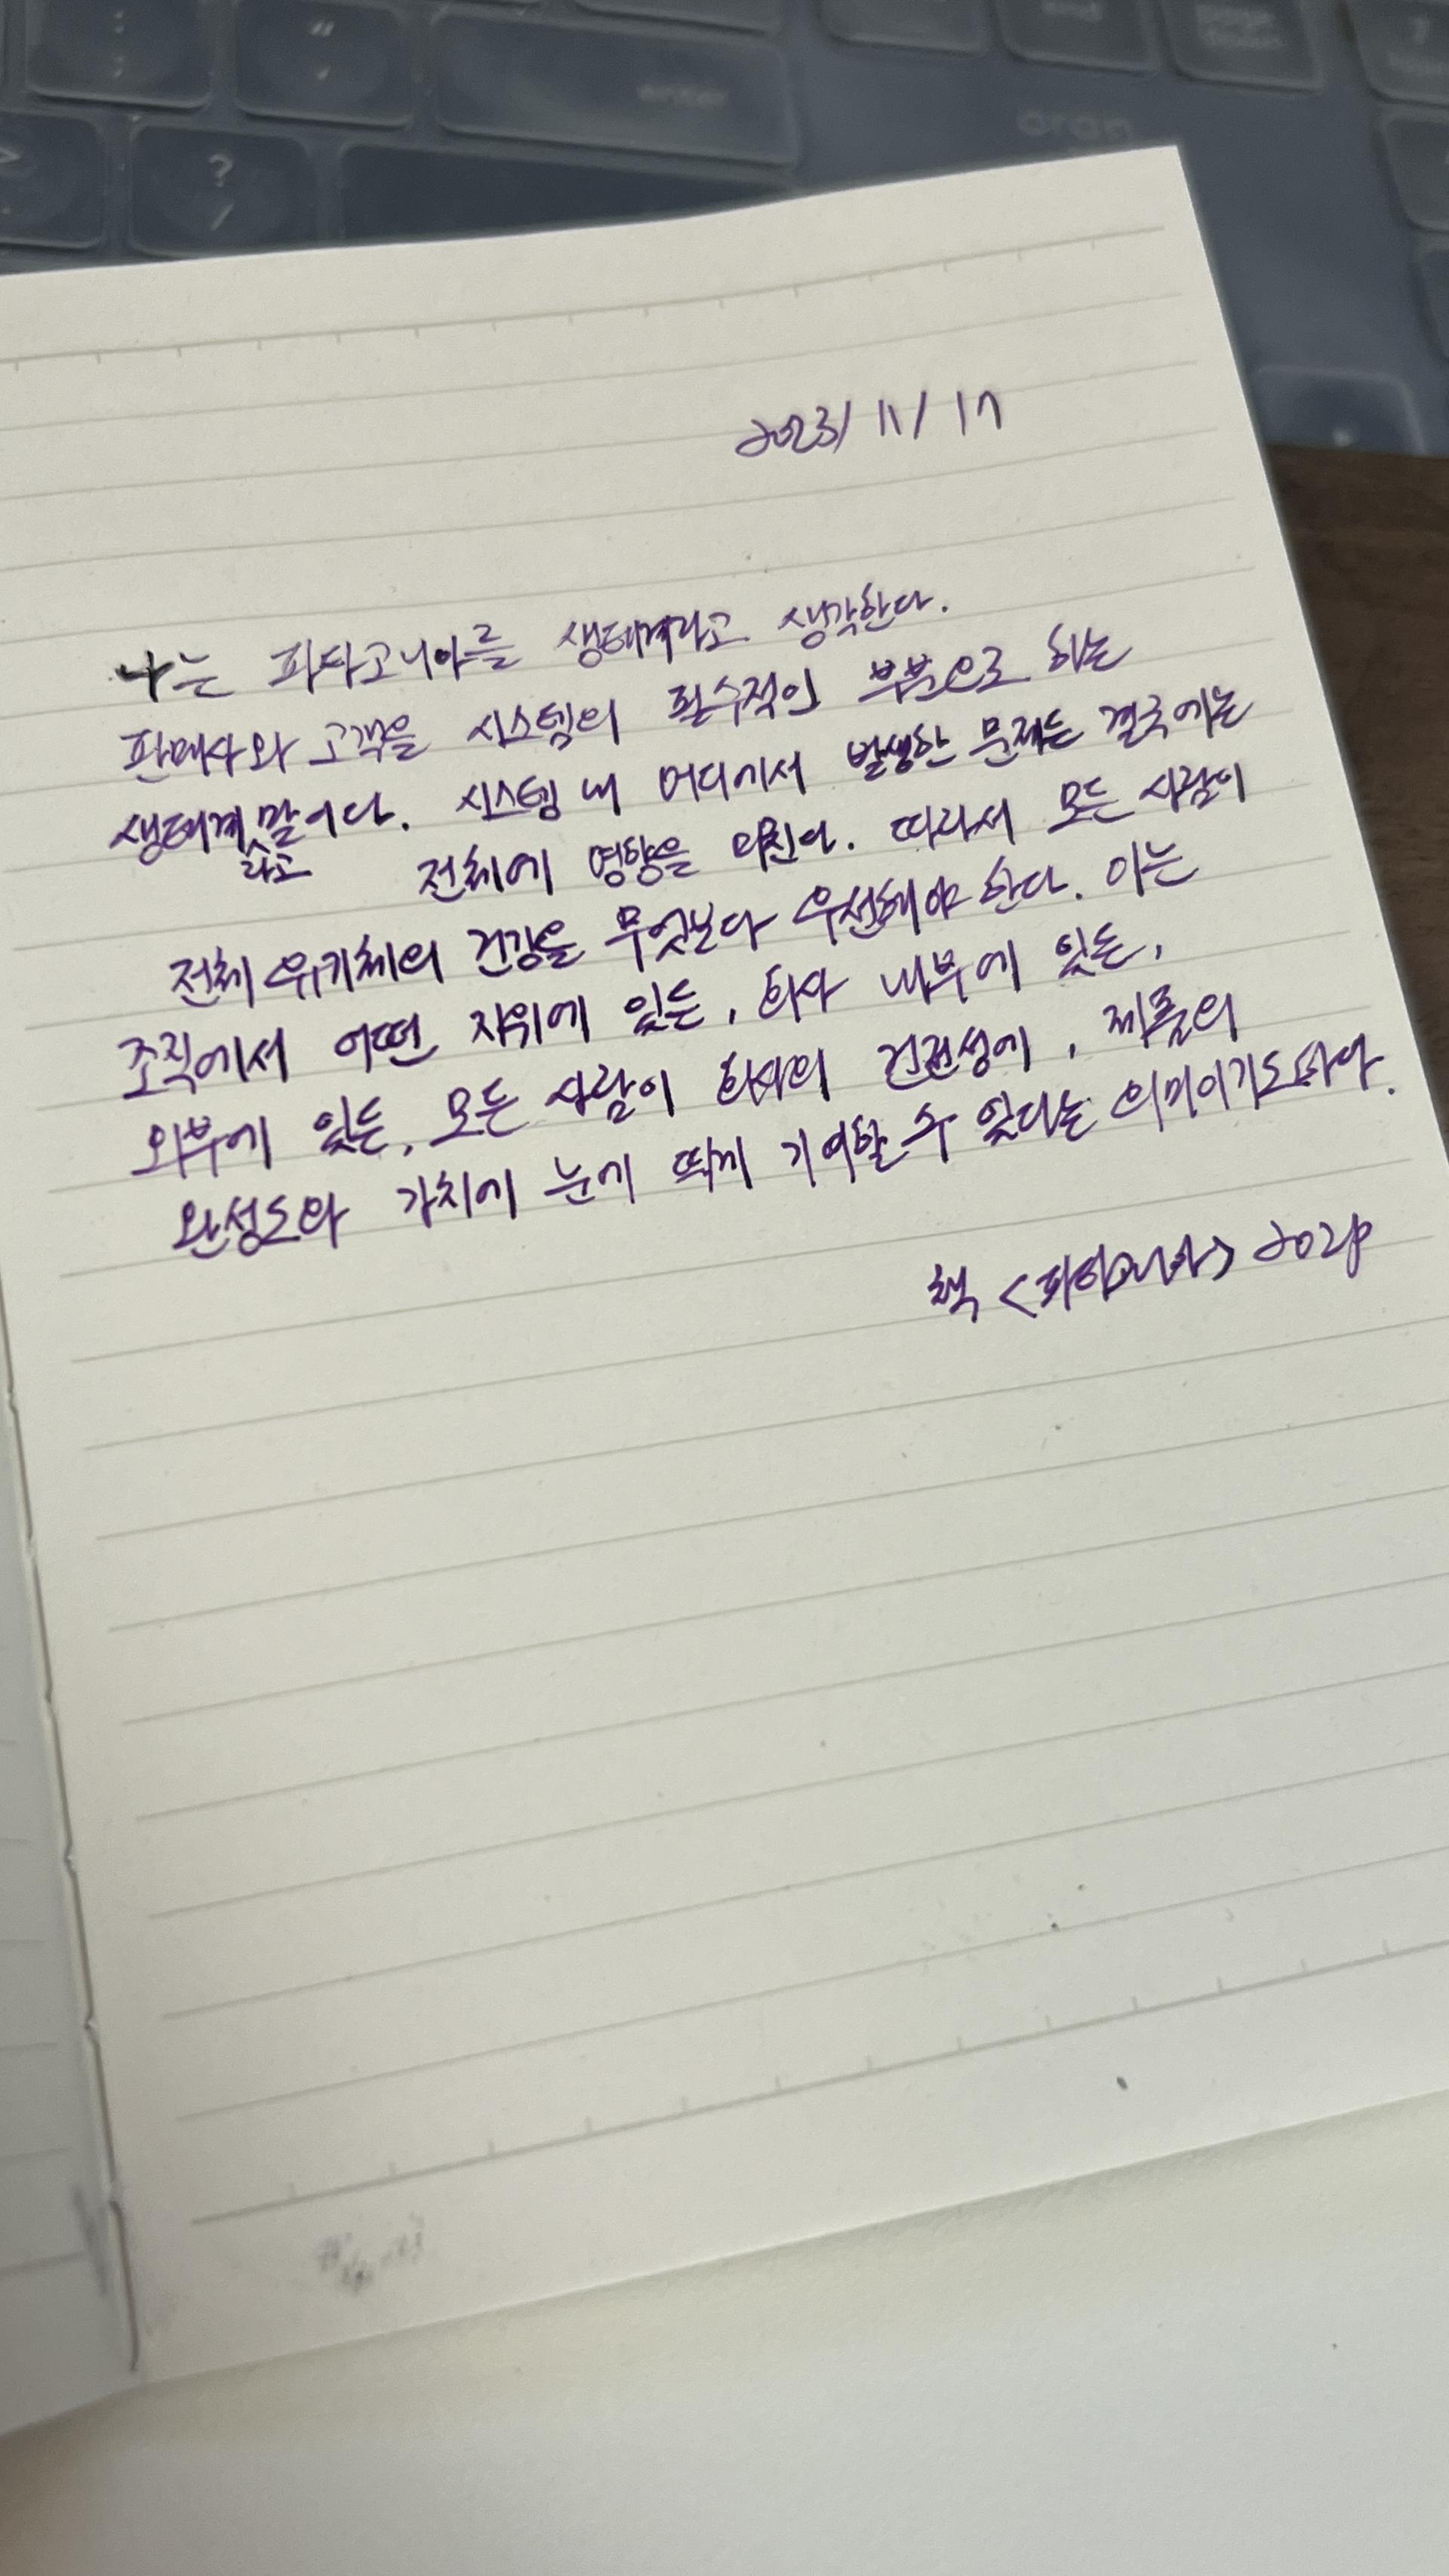 enter
oran
?
/
2023/11/17
나는 파타고니아를 생태계라고 생각한다.
판매사와 고객을 시스템의 필수적인 부분으로 하는
생태계라고 말이다. 시스템 내 어디에서 발생한 문제든 결국에는
전체에 영향을 미친다. 따라서 모든 사람이
전체 유기체의 건강을 무엇보다 우선해야 한다. 이는
조직에서 어떤 지위에 있든, 회사 내부에 있든,
외부에 있든, 모든 사람이 회사의 건전성에, 제품의
완성도와 가치에 눈에 띄게 기여할 수 있다는 의미이기도 하다.
책 <파타고니아> 202p